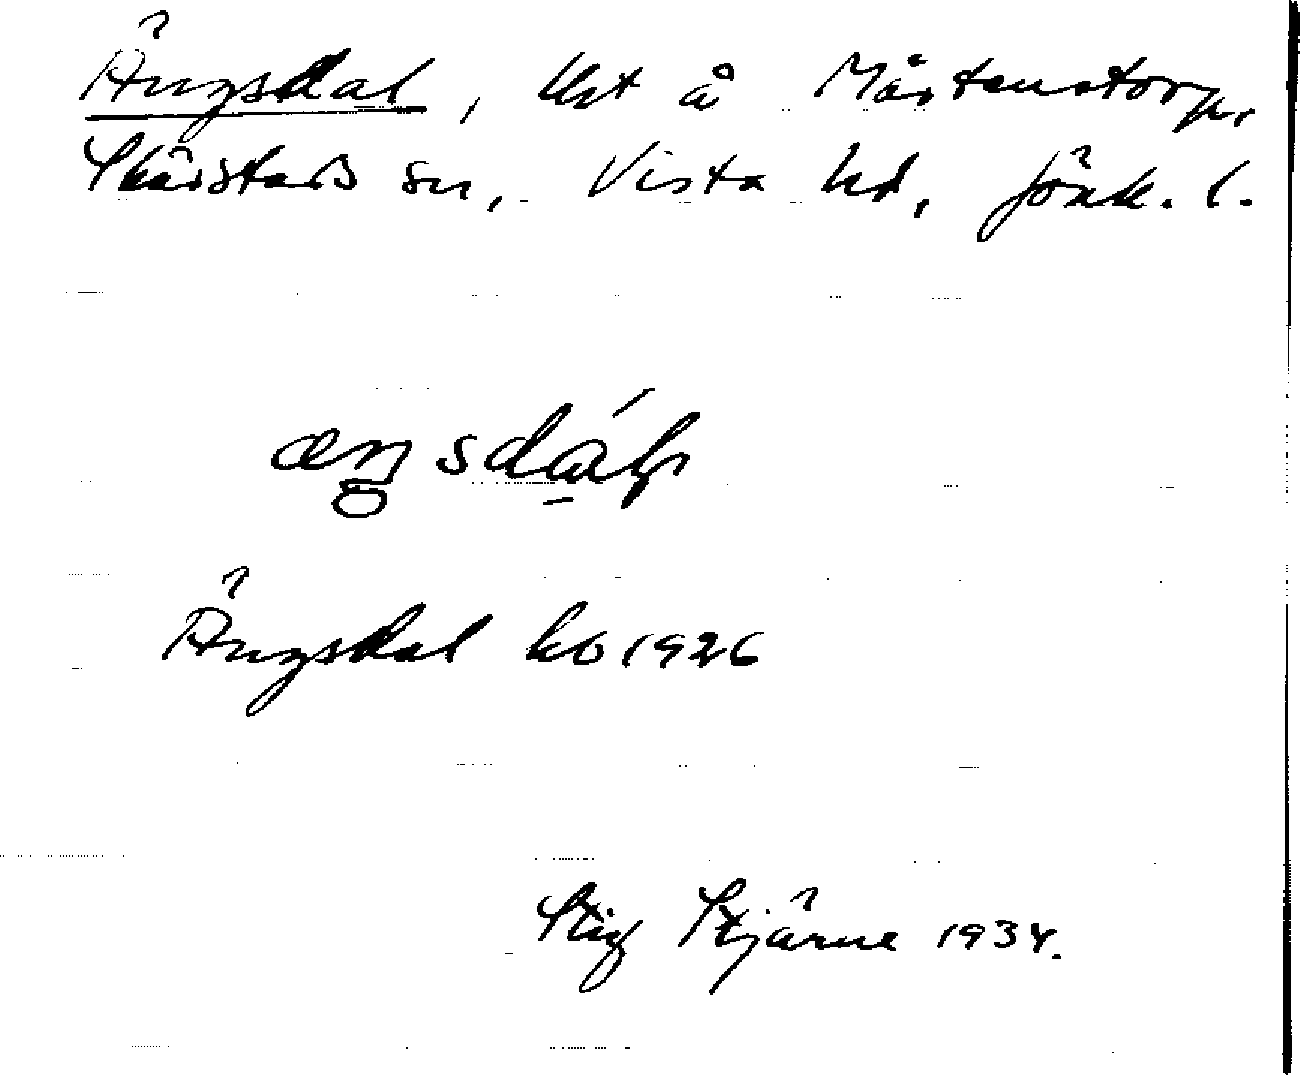 Ängsdal, lht å Mårtenstorp,
Skärstads sn, Vista hd, Jönk. l.
æŋsdál
Ängsdal kb 1926
Stig Stjärne 1934.